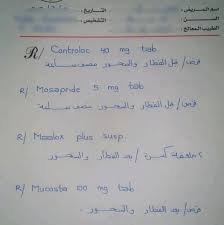 اسم المريض: التاريخ: / /
السن: التشخيص:
الطبيب المعالج:
R/ Controloc 40 mg tab
قرص / قبل الفطار والسحور بنصف ساعة
R/ Mosapride 5 mg tab
قرص / قبل الفطار والسحور بنصف ساعة
R/ Maalox plus susp.
ملعقة كبيرة / بعد الفطار والسحور
R/ Mucosta 100 mg tab
قرص / بعد الفطار والسحور